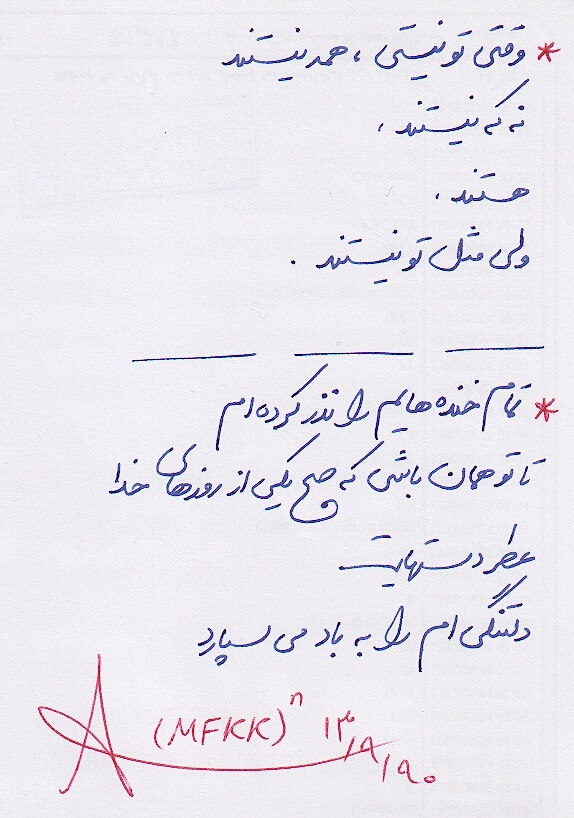 * وقتی تو نیستی ، همه نیستند
نه که نیستند ،
هستند .
ولی مثل تو نیستند .
* تمام خنده هایم را نذر کرده ام
تا تو همان باشی که صبح یکی از روزهای خدا
عطر دستهایت
دلتنگی ام را به باد می سپارد
A (MFKK)ⁿ ۱۳/۸/۹۰